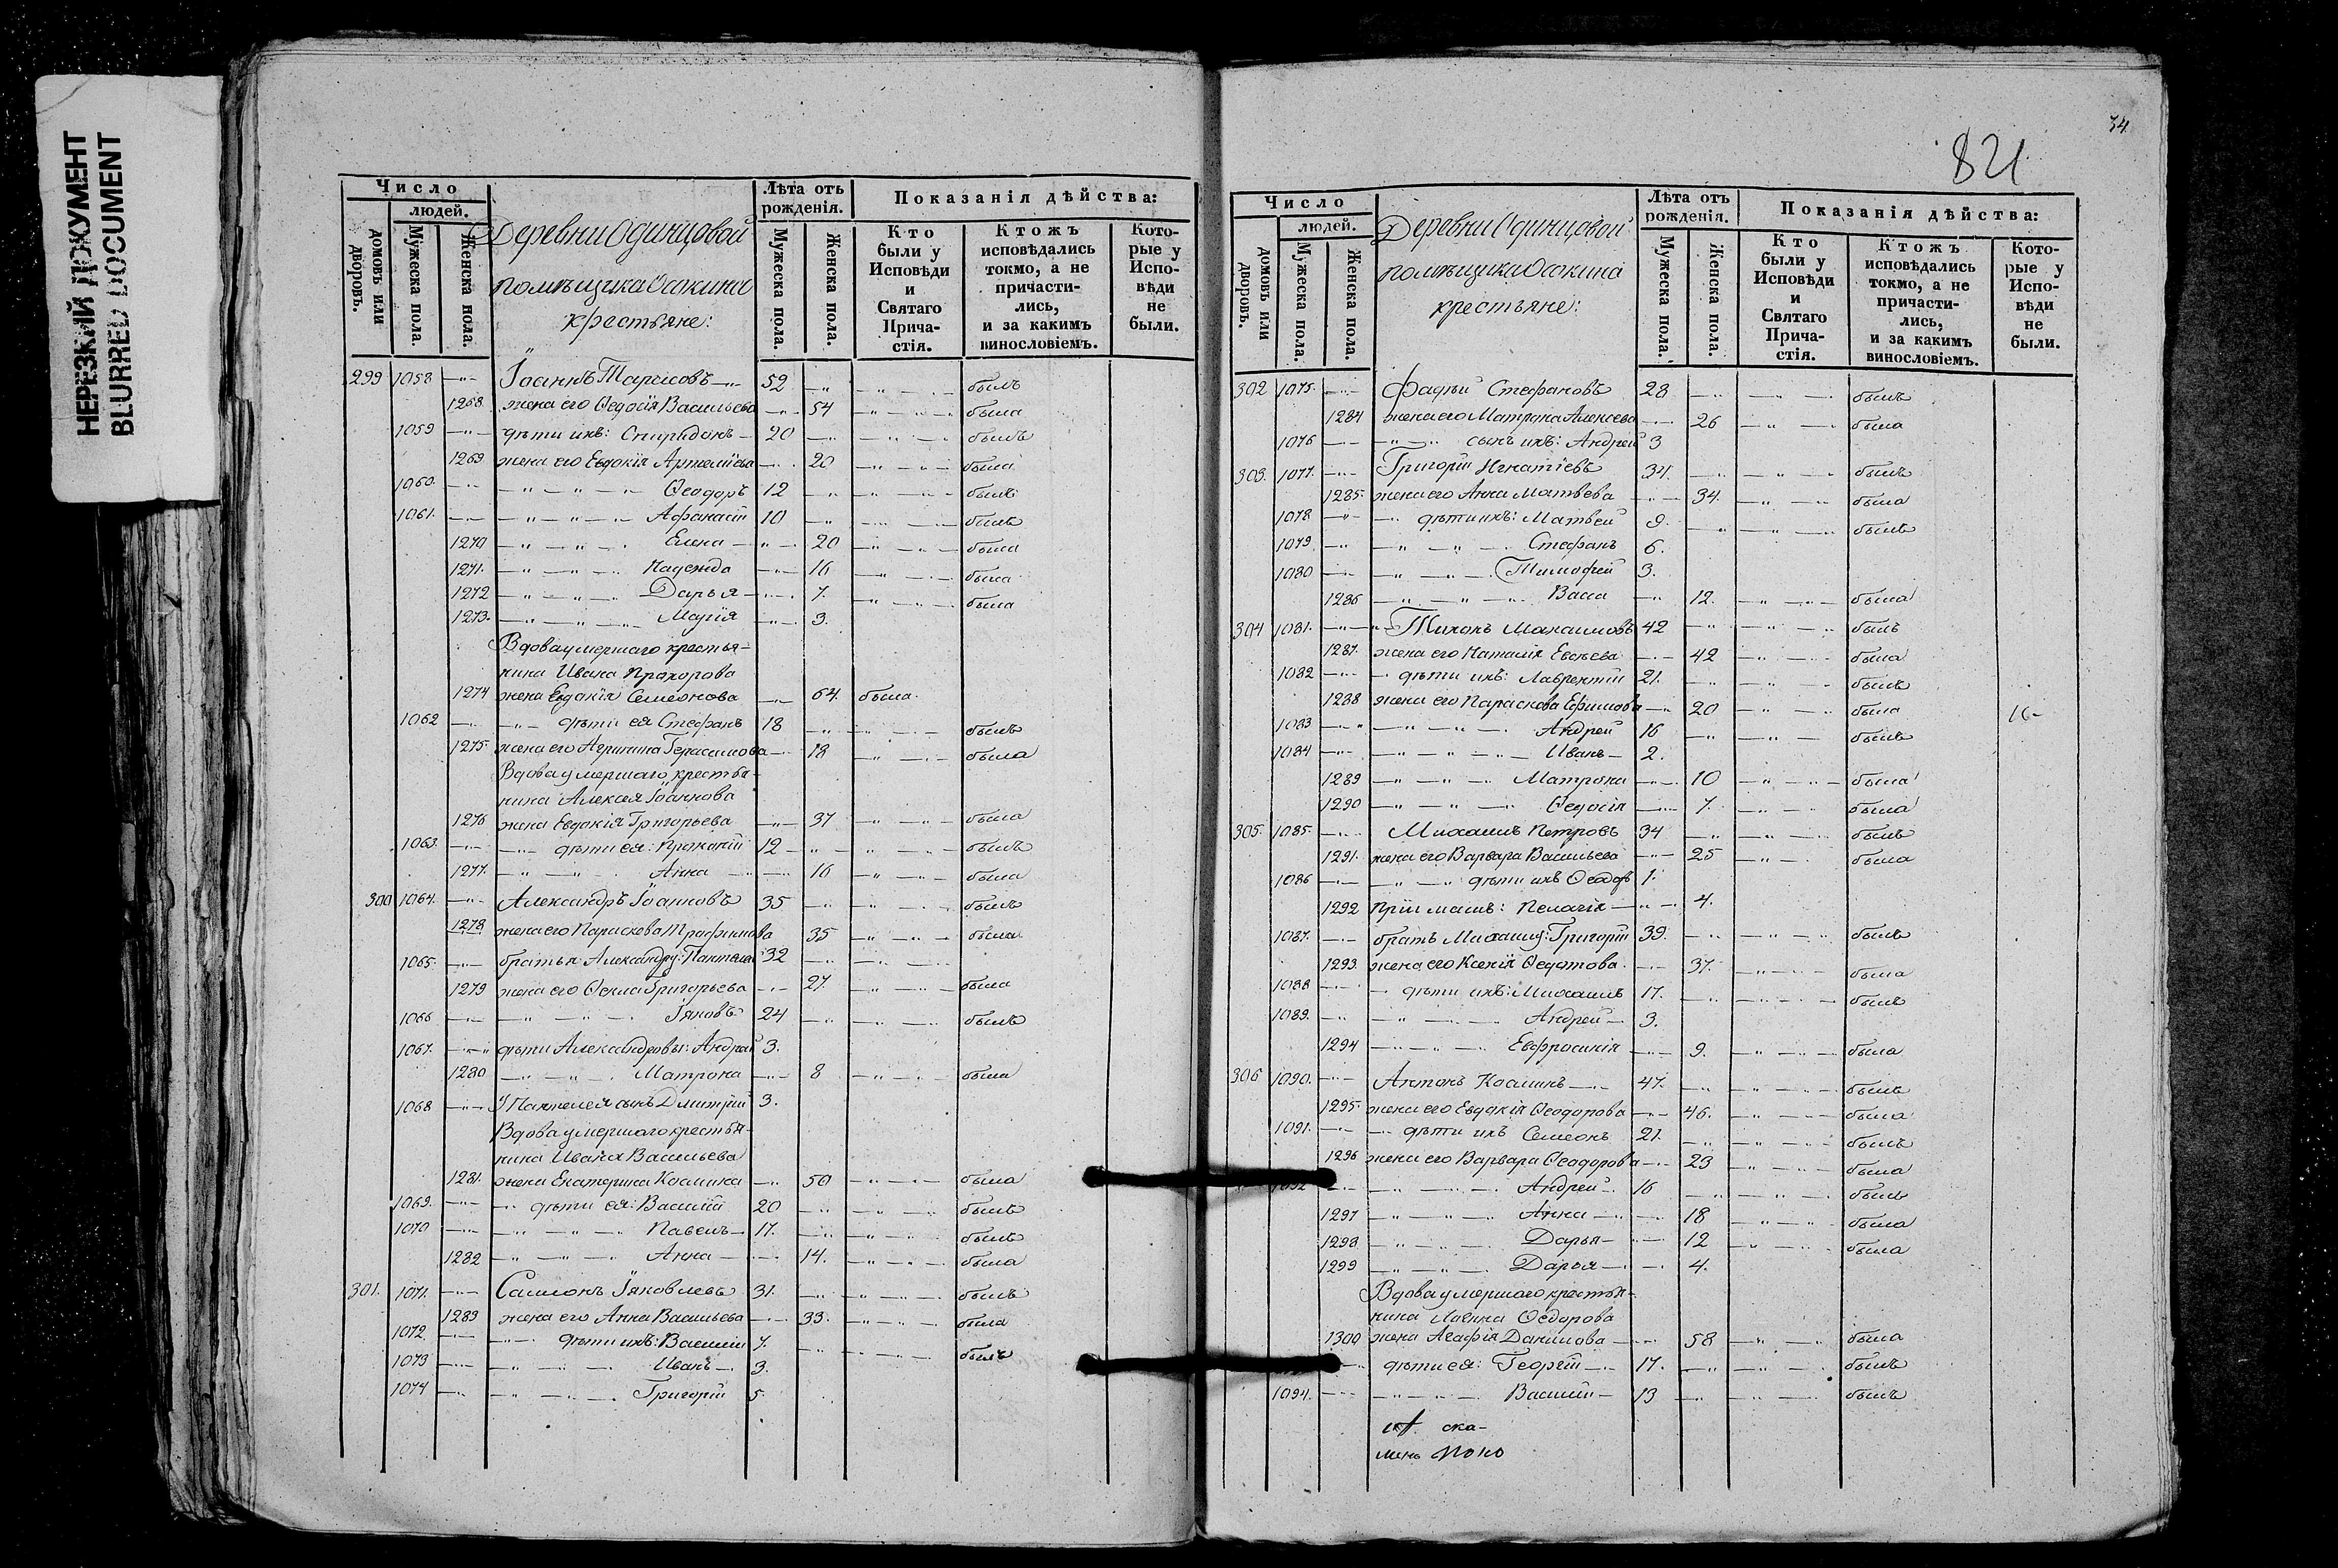 НЕРЕЗКИЙ ДОКУМЕНТ
BLURRED DOCUMENT
Число
людей.
домовъ или дворовъ.
Мужеска пола.
Женска пола.
Деревни Одинцовой
помѣщика Осокина
крестьяне:
Лѣта отъ рожденія.
Мужеска пола.
Женска пола.
Показанія дѣйства:
Кто были у Исповѣди и Святаго Прича-стія.
Ктожъ исповѣдались токмо, а не причасти-лись, и за какимъ винословіемъ.
Кото-рые у Испо-вѣди не были.
299 1058 Іоаннъ Тарасовъ 52 былъ
1268 жена его Ѳедосія Васильева 54 была
1059 дѣти ихъ: Спиридонъ 20 былъ
1269 жена его Евдокія Артеміева 20 была
1060. Ѳеодоръ 12 былъ
1061. Афанасій 10 былъ
1270 Елена 20 была
1271. Надежда 16 была
1272 Дарья 7. была
1273. Марія 3.
Вдова умершаго крестья-
нина Ивана Прохорова
1274 жена Евдокія Семенова 64. была.
1062 дѣти ея Стефанъ 18 былъ
1275. жена его Агрипина Герасимова 18 была
Вдова умершаго крестья-
нина Алексея Іоаннова
1276 жена Евдокія Григорьева 37 была
1063. дѣти ея: Прокопій 12 былъ
1277. Анна 16 была
300 1064. Александръ Іоанновъ 35 былъ
1278 жена его Парасковья Трофимова 35 была
1065. братья Александру: Пантелей 32
1279 жена его Ѳекла Григорьева 27. была
1066 Іяковъ 24 былъ
1067. дѣти Александровы: Андрей 3.
1280 Матрона 8 была
1068 У Пантелея сынъ Дмитрій 3.
Вдова умершаго крестья-
нина Ивана Васильева
1281. жена Екатерина Космина 50 была
1069. дѣти ея: Василій 20 былъ
1070 Павелъ 17. былъ
1282 Анна 14. была
301. 1071. Самсонъ Іяковлевъ 31. былъ
1283 жена его Анна Васильева 33. была
1072 дѣти ихъ: Василій 7. былъ
1073 Иванъ 3.
1074 Григорій 5.
34.
821
Число
людей.
домовъ или дворовъ.
Мужеска пола.
Женска пола.
Деревни Одинцовой
помѣщика Осокина
крестьяне:
Лѣта отъ рожденія.
Мужеска пола.
Женска пола.
Показанія дѣйства:
Кто были у Исповѣди и Святаго Прича-стія.
Ктожъ исповѣдались токмо, а не причасти-лись, и за какимъ винословіемъ.
Кото-рые у Испо-вѣди не были.
302 1075. Фадѣй Стефановъ 28 былъ
1284 жена его Матрона Алексева 26 была
1076 сынъ ихъ: Андрей 3
303. 1077. Григорій Игнатіевъ 34. былъ
1285. жена его Анна Матвѣева 34. была
1078 дѣти ихъ: Матвей 9. былъ
1079 Стефанъ 6.
1080 Тимофей 3.
1286 Васса 12. была
304 1081. Тихонъ Максимовъ 42 былъ
1287. жена его Наталія Евсѣева 42 была
1082 дѣти ихъ: Лаврентій 21. былъ
1288 жена его Параскова Ефимова 20 была 16-
1083 Андрей 16 былъ
1084 Иванъ 2.
1289 Матрона 10 была
1290 Ѳедосія 7. была
305. 1085. Михаилъ Петровъ 34 былъ
1291. жена его Варвара Васильева 25 была
1086 дѣти ихъ Ѳеодоръ 1.
1292 Пелагія 4.
1087. братъ Михаилу: Григорій 39. былъ
1293. жена его Ксенія Ѳедотова 37. была
1088 дѣти ихъ: Михаилъ 17. былъ
1089. Андрей 3.
1294 Евфросинія 9. была
306 1090. Антонъ Косминъ 47. былъ
1295. жена его Евдокія Ѳеодорова 46. была
1091. дѣти ихъ Семеонъ 21. былъ
1296 жена его Варвара Ѳеодорова 23 была
1092 Андрей 16 былъ
1297 Анна 18 была
1298 Дарья 12 была
1299 Дарья 4.
Вдова умершаго крестья-
нина Ѳедорова
1300 жена Агафія Данилова 58 была
дѣти ея: Георгій 17. былъ
1094. Василій 13 былъ